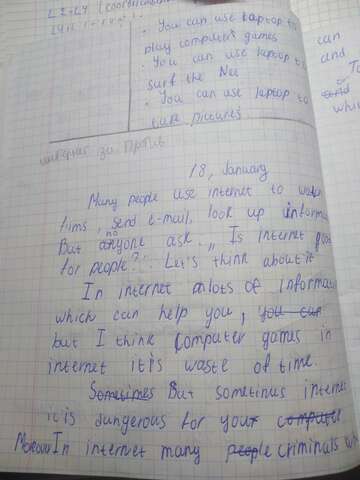 You can use laptop to
play computer games
You can use laptop to
surf the Net
You can use laptop to
take pictures
can
and
интернет за Против
18, January
Many people use internet to
films, send e-mail, look up
But no anyone ask „ Is internet
for people?". Let's think about it
In internet lots of
which can help you, you can
but I think computer games in
internet it is waste of time.
Sometimes But sometimes
it is dangerous for your computer
Moreover In internet many people criminals